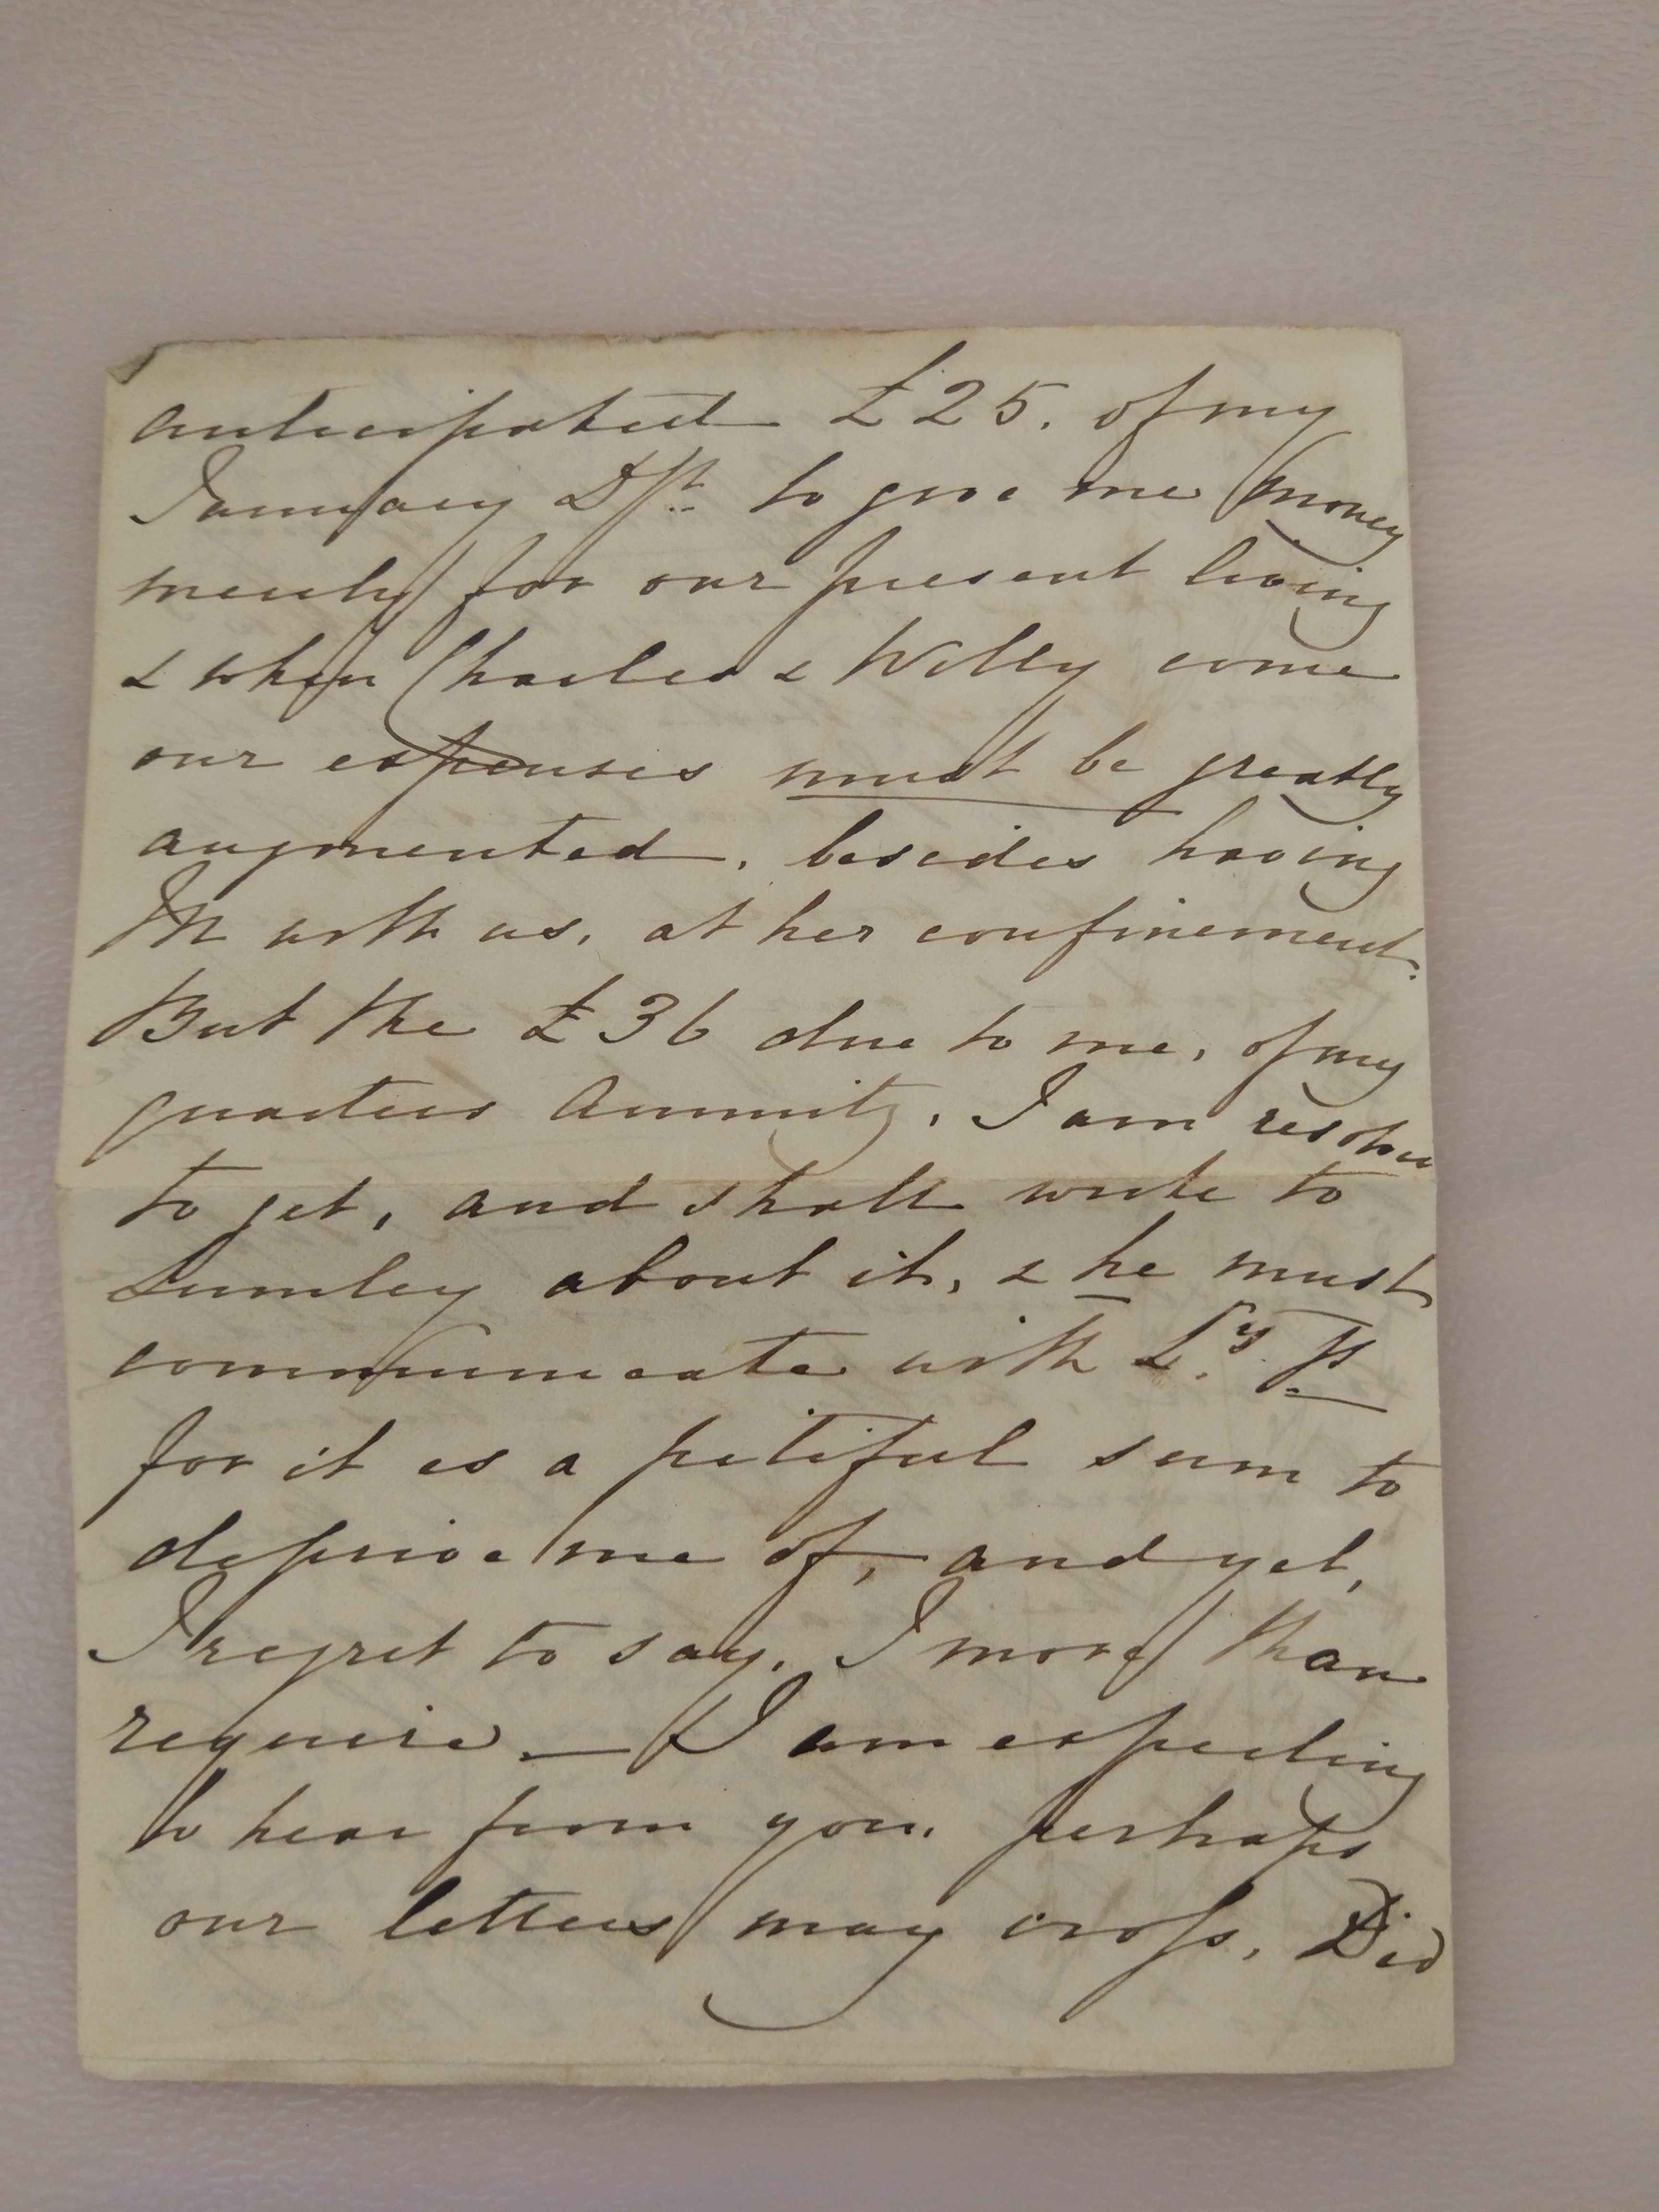 anticipated £25. of my
January Dft. to give me money
merely for our present living
& when Charles & Willy come
our expenses must be greatly
augmented, besides having
M with us, at her confinement.
But the £36 due to me, of my
quarters Annuity, I am resolved
to get, and shall write to
Lumley about it, & he must
communicate with Ly. P
for it is a pitiful sum to
deprive me of, and yet,
I regret to say, I more than
require. — I am expecting
to hear from you. perhaps
our letters may cross. Did